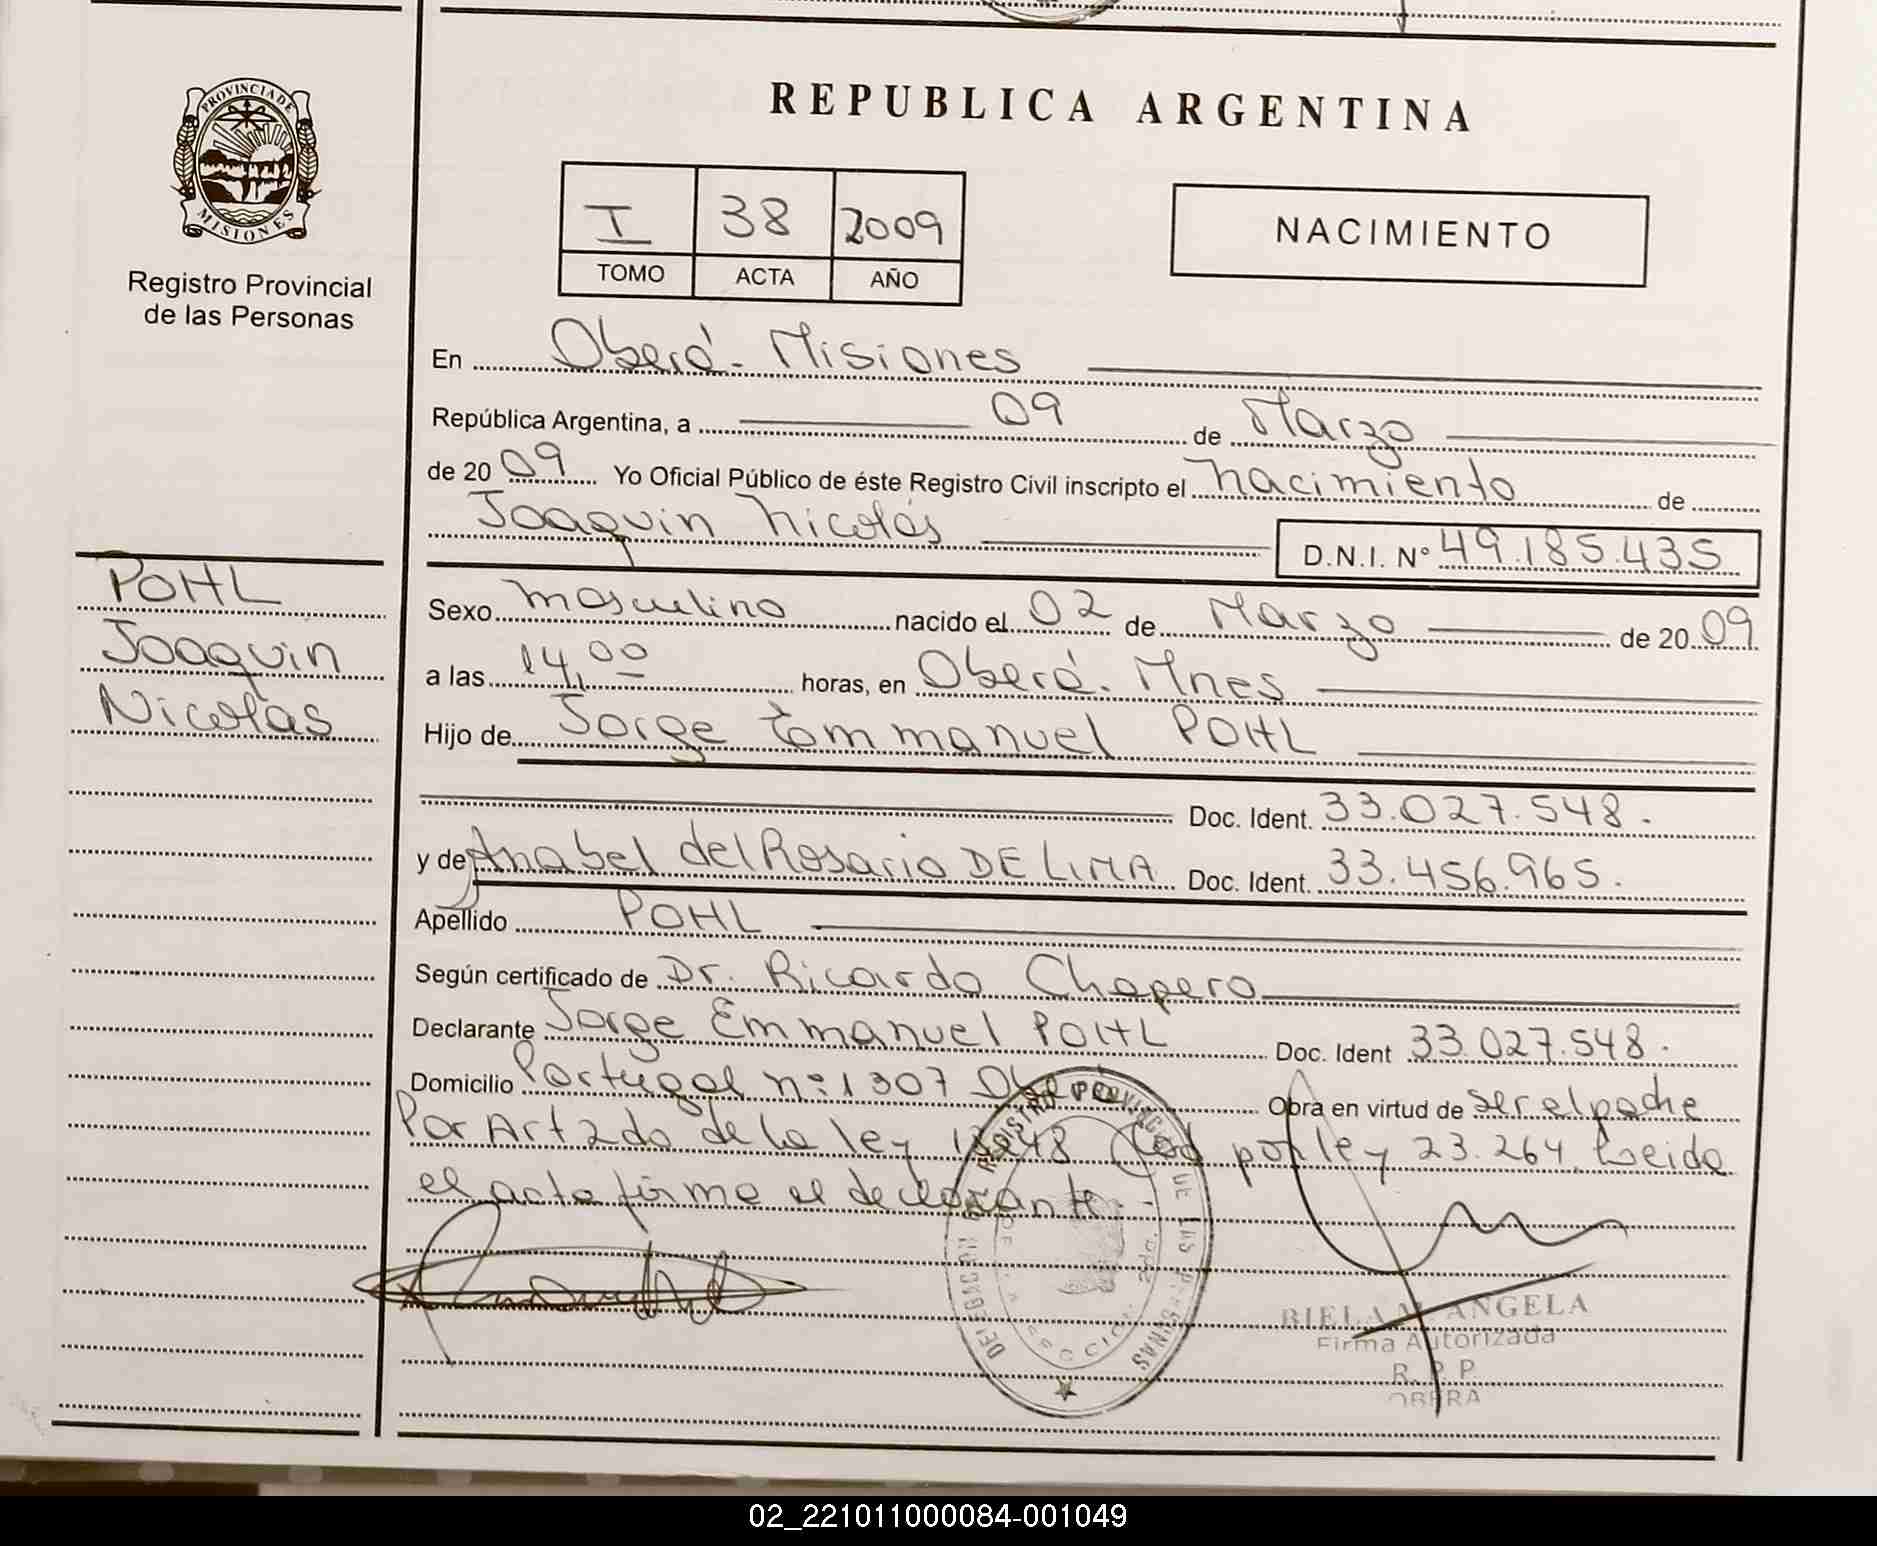 PROVINCIA DE
MISIONES
Registro Provincial
de las Personas
POHL
Joaquin
Nicolás
REPUBLICA ARGENTINA
I 38 2009
TOMO ACTA AÑO
NACIMIENTO
En Oberá - Misiones
República Argentina, a 09 de Marzo
de 2009 Yo Oficial Público de éste Registro Civil inscripto el nacimiento de
Joaquin Nicolás D.N.I. Nº 49.185.435
Sexo masculino nacido el 02 de Marzo de 2009
a las 14,00 horas, en Oberá. Mnes
Hijo de Jorge Emmanuel POHL
Doc. Ident. 33.027.548.
y de Anabel del Rosario DE LIMA Doc. Ident. 33.456.965.
Apellido POHL
Según certificado de Dr. Ricardo Chapero
Declarante Jorge Emmanuel POHL Doc. Ident 33.027.548.
Domicilio Portugal nº 1307 Oberá Obra en virtud de ser el padre
Por Art 2do de la ley por ley 23.264. Leida
el acta firma el declarante.-
REGISTRO PROVINCIAL DE LAS PERSONAS
2da.
SECCION
ANGELA
Firma Autorizada
R.P.P.
OBERA
02_221011000084-001049